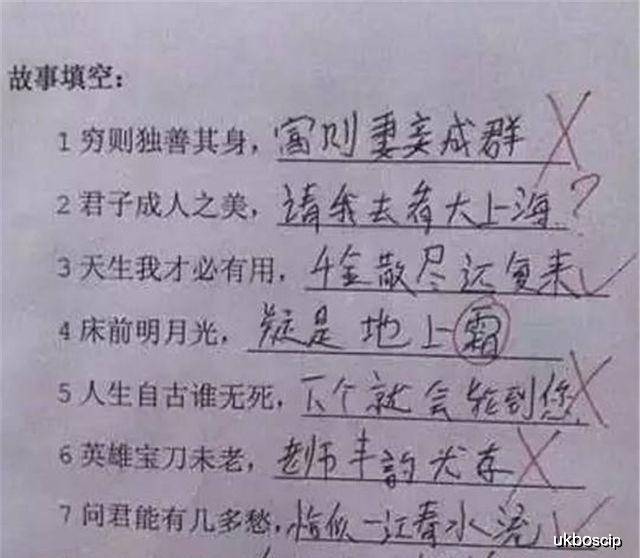 故事填空：
1 穷则独善其身，富则妻妾成群
2 君子成人之美，请我去看大上海？
3 天生我才必有用，千金散尽还复来
4 床前明月光，疑是地上霜
5 人生自古谁无死，下个就会轮到您
6 英雄宝刀未老，老师丰韵尤存
7 问君能有几多愁，恰似一江春水流
ukboscip